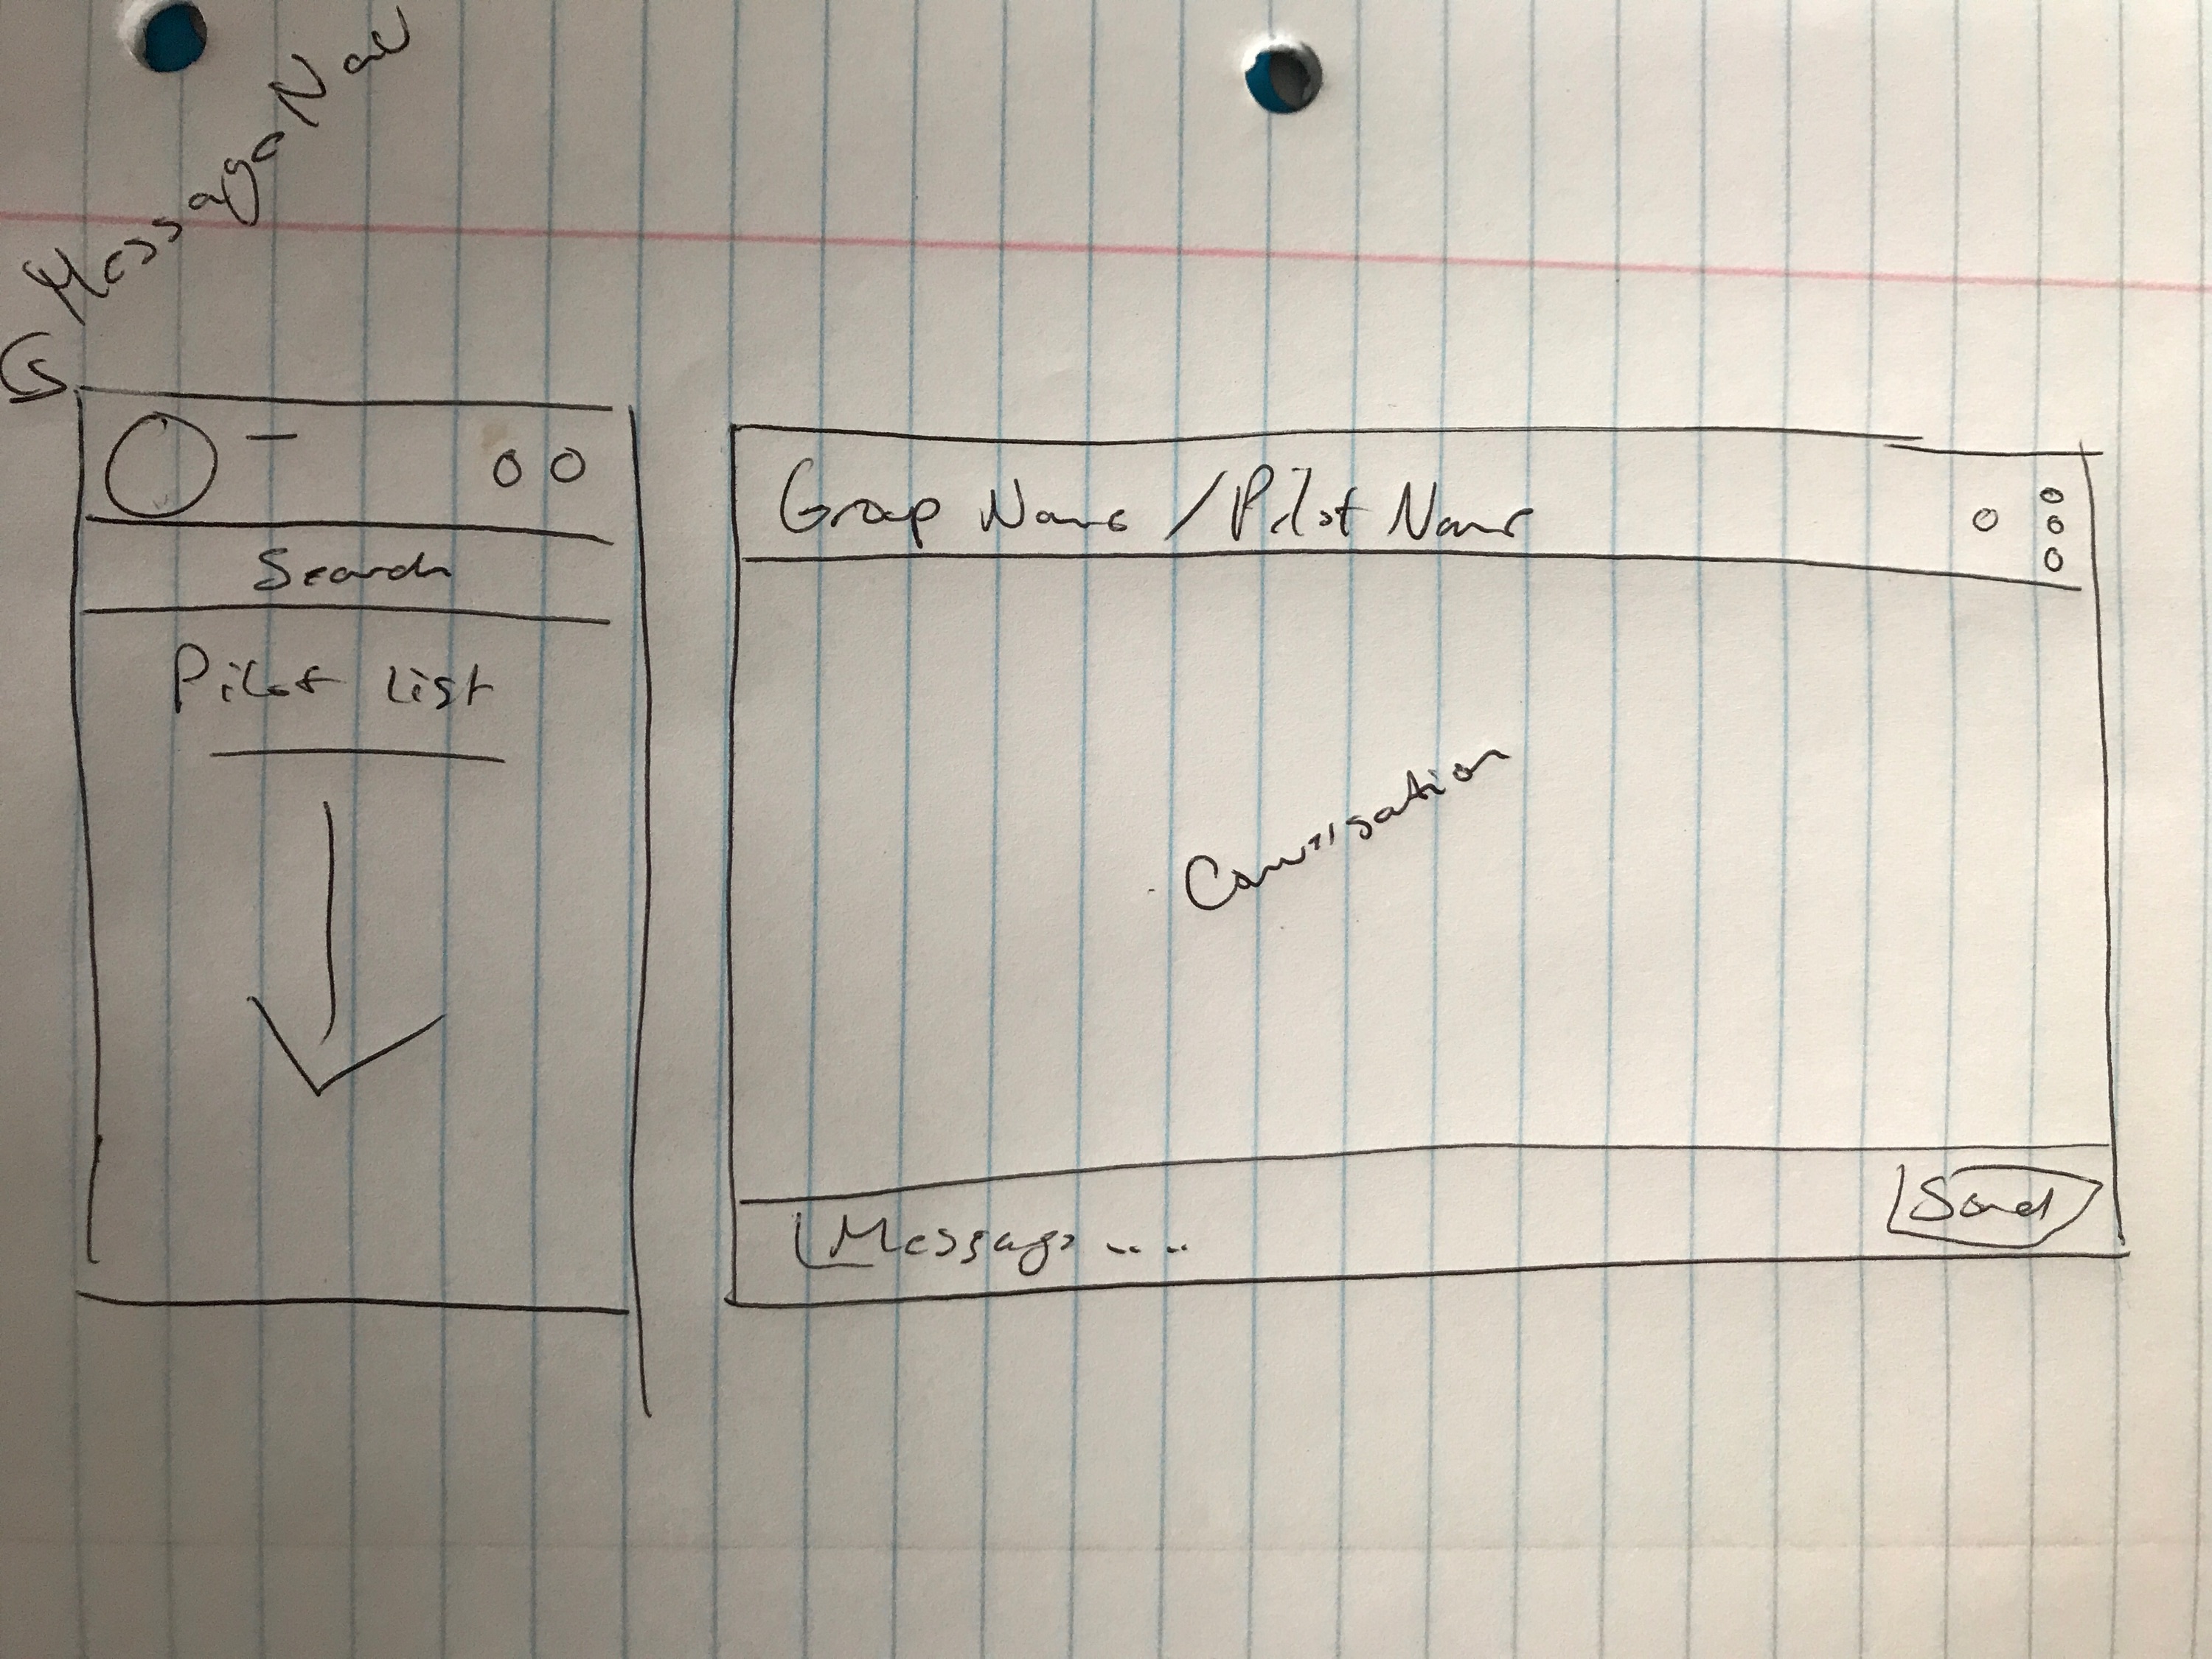 Message Nav
Search
Pilot List
Group Name / Pilot Name
Conversation
Message ....
Send